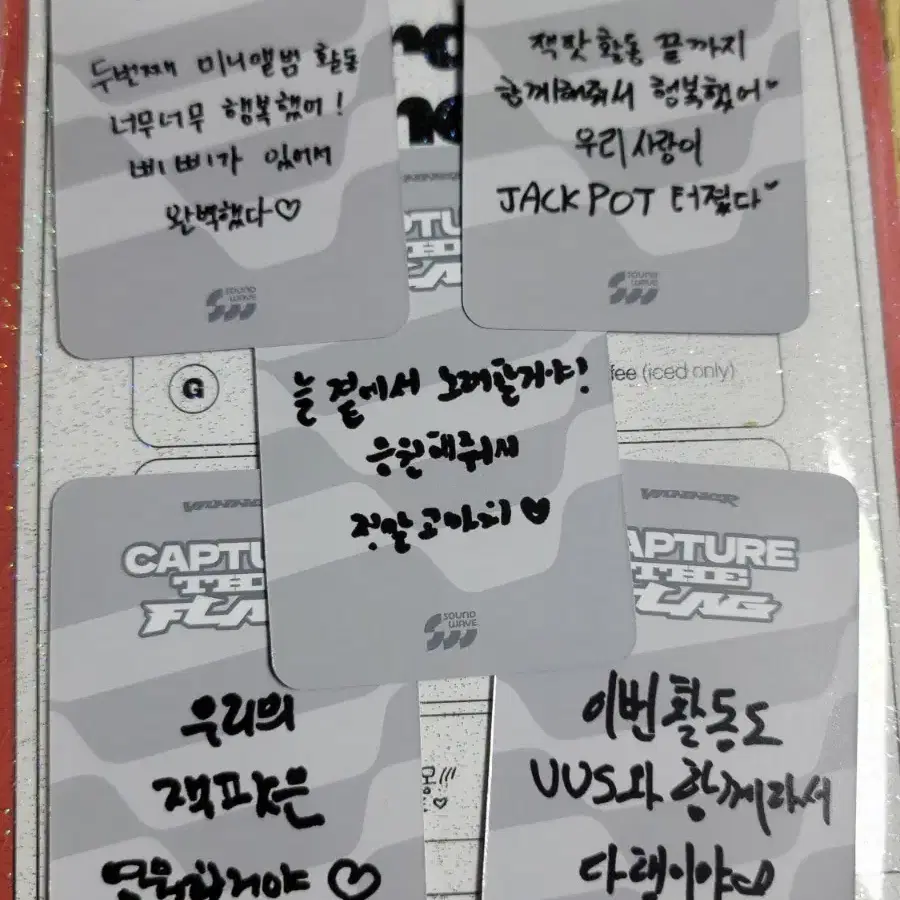 두번째 미니앨범 활동
너무너무 행복했어!
삐삐가 있어서
완벽했다♡
SOUND
WAVE
잭팟 활동 끝까지
함께해줘서 행복했어♥
우리 사랑이
JACKPOT 터졌다♥
SOUND
WAVE
G
fee (iced only)
늘 곁에서 노래할거야!
응원해줘서
정말 고마워♥
SOUND
WAVE
CAPTU
THE
FLAG
우리의
잭팟은
영원할거야♡
APTURE
THE
FLAG
이번 활동도
UUS와 함께라서
다행이야♡